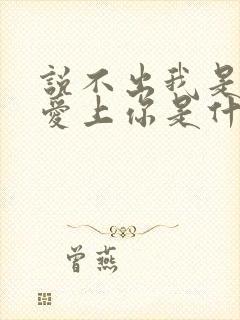 說不出我是
愛上你是什
曾燕